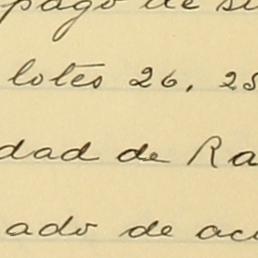 pago de su
lotes 26, 25
dad de Ra
ado de acu